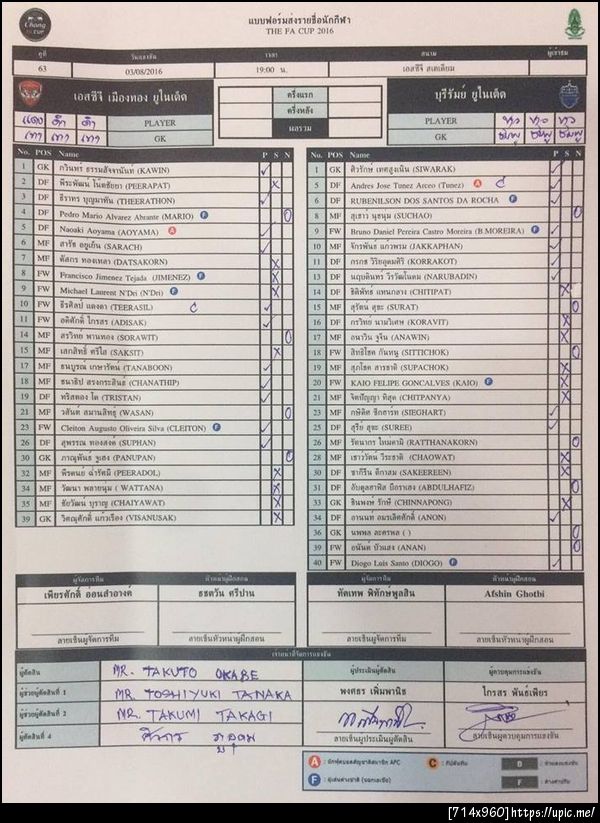 Chang
FA CUP
แบบฟอร์มส่งรายชื่อนักกีฬา
THE FA CUP 2016
คู่ที่ วันแข่งขัน เวลา สนาม ผู้เข้าชม
63 03/08/2016 19:00 น. เอสซีจี สเตเดียม
เอสซีจี เมืองทอง ยูไนเต็ด
แดง ดำ ดำ PLAYER
เทา เทา เทา GK
ครึ่งแรก
ครึ่งหลัง
ผลรวม
บุรีรัมย์ ยูไนเต็ด
PLAYER
GK ชมพู ชมพู ชมพู
No. POS Name P S N
1 GK กวินทร์ ธรรมสัจจานันท์ (KAWIN) ✓
2 DF พีระพัฒน์ โน๊ตชัยยา (PEERAPAT) X
3 DF ธีราทร บุญมาทัน (THEERATHON) ✓
4 DF Pedro Mario Alvarez Abrante (MARIO) F O
5 DF Naoaki Aoyama (AOYAMA) A ✓
6 MF สารัช อยู่เย็น (SARACH) ✓
7 MF ดัสกร ทองเหลา (DATSAKORN) X
8 FW Francisco Jimenez Tejada (JIMENEZ) F X
9 FW Michael Laurent N'Dri (N'Dri) F X
10 FW ธีรศิลป์ แดงดา (TEERASIL) C ✓
11 FW อดิศักดิ์ ไกรษร (ADISAK) ✓
14 MF สรวิทย์ พานทอง (SORAWIT) O
15 MF เสกสิทธิ์ ศรีใส (SAKSIT) X
17 MF ธนบูรณ์ เกษารัตน์ (TANABOON) ✓
18 MF ชนาธิป สรงกระสินธ์ (CHANATHIP) ✓
19 DF ทริสตอง โด (TRISTAN) ✓
21 MF วสันต์ สมานสิทธุ์ (WASAN) O
23 FW Cleiton Augusto Oliveira Silva (CLEITON) F ✓
26 DF สุพรรณ ทองสงค์ (SUPHAN) ✓
30 GK ภาณุพันธ์ จูเฮง (PANUPAN) O
32 MF พีรดนย์ ฉ่ำรัศมี (PEERADOL) X
34 MF วัฒนา พลายนุ่ม (WATTANA) X
35 MF ชัยวัฒน์ บุราญ (CHAIYAWAT) X
39 GK วิศณุศักดิ์ แก้วเรือง (VISANUSAK) X
No. POS Name P S N
1 GK ศิวรักษ์ เทศสูงเนิน (SIWARAK) ✓
5 DF Andres Jose Tunez Arceo (Tunez) A C ✓
6 DF RUBENILSON DOS SANTOS DA ROCHA F ✓
8 MF สุเชาว์ นุชนุ่ม (SUCHAO) O
9 FW Bruno Daniel Pereira Castro Moreira (B.MOREIRA) F ✓
10 MF จักรพันธ์ แก้วพรม (JAKKAPHAN) ✓
11 DF กรกช วิริยอุดมศิริ (KORRAKOT) ✓
13 DF นฤบดินทร์ วีรวัฒโนดม (NARUBADIN) ✓
14 DF ธิติพัทธ์ แทนกลาง (CHITIPAT) X
15 MF สุรัตน์ สุขะ (SURAT) O
16 DF กรวิทย์ นามวิเศษ (KORAVIT) X
17 MF อนาวิน จูจีน (ANAWIN) X
18 FW สิทธิโชค กันหนู (SITTICHOK) O
19 MF สุภโชค สารชาติ (SUPACHOK) X
20 FW KAIO FELIPE GONCALVES (KAIO) F X
21 MF จิตปัญญา ทิสุด (CHITPANYA) X
23 MF กษิดิศ ซีกฮาร์ท (SIEGHART) ✓
25 DF สุรีย์ สุขะ (SUREE) ✓
26 MF รัตนากร ใหม่คามิ (RATTHANAKORN) O
28 MF เชาว์วัตน์ วีระชาติ (CHAOWAT) X
30 DF ซากีรีน ตีกาสม (SAKEEREEN) X
31 DF อับดุลฮาฟิส บือราเฮง (ABDULHAFIZ) O
33 GK ชินพงษ์ รักษี (CHINNAPONG) X
34 DF อานนท์ อมรเลิศศักดิ์ (ANON) ✓
36 GK นพพล ละครพล ( ) O
39 FW อนันต์ บัวแสง (ANAN) O
40 FW Diogo Luis Santo (DIOGO) F ✓
ผู้จัดการทีม หัวหน้าผู้ฝึกสอน
เพียรศักดิ์ อ่อนสำอางค์ ธชตวัน ศรีปาน
ลายเซ็นผู้จัดการทีม ลายเซ็นหัวหน้าผู้ฝึกสอน
ผู้จัดการทีม หัวหน้าผู้ฝึกสอน
ทัดเทพ พิทักษ์พูลสิน Afshin Ghotbi
ลายเซ็นผู้จัดการทีม ลายเซ็นหัวหน้าผู้ฝึกสอน
เจ้าหน้าที่จัดการแข่งขัน
ผู้ตัดสิน MR. TAKUTO OKABE
ผู้ช่วยผู้ตัดสินที่ 1 MR. TOSHIYUKI TANAKA
ผู้ช่วยผู้ตัดสินที่ 2 MR. TAKUMI TAKAGI
ผู้ตัดสินที่ 4 ศิวกร ภูอุดม
ผู้ประเมินผู้ตัดสิน ผู้ควบคุมการแข่งขัน
พงศธร เพิ่มพานิช ไกรสร พันธ์เพียร
ลายเซ็นผู้ประเมินผู้ตัดสิน ลายเซ็นผู้ควบคุมการแข่งขัน
A : นักฟุตบอลสัญชาติสมาชิก AFC C : กัปตันทีม
F : ผู้เล่นต่างชาติ
[714x960]https://upic.me/